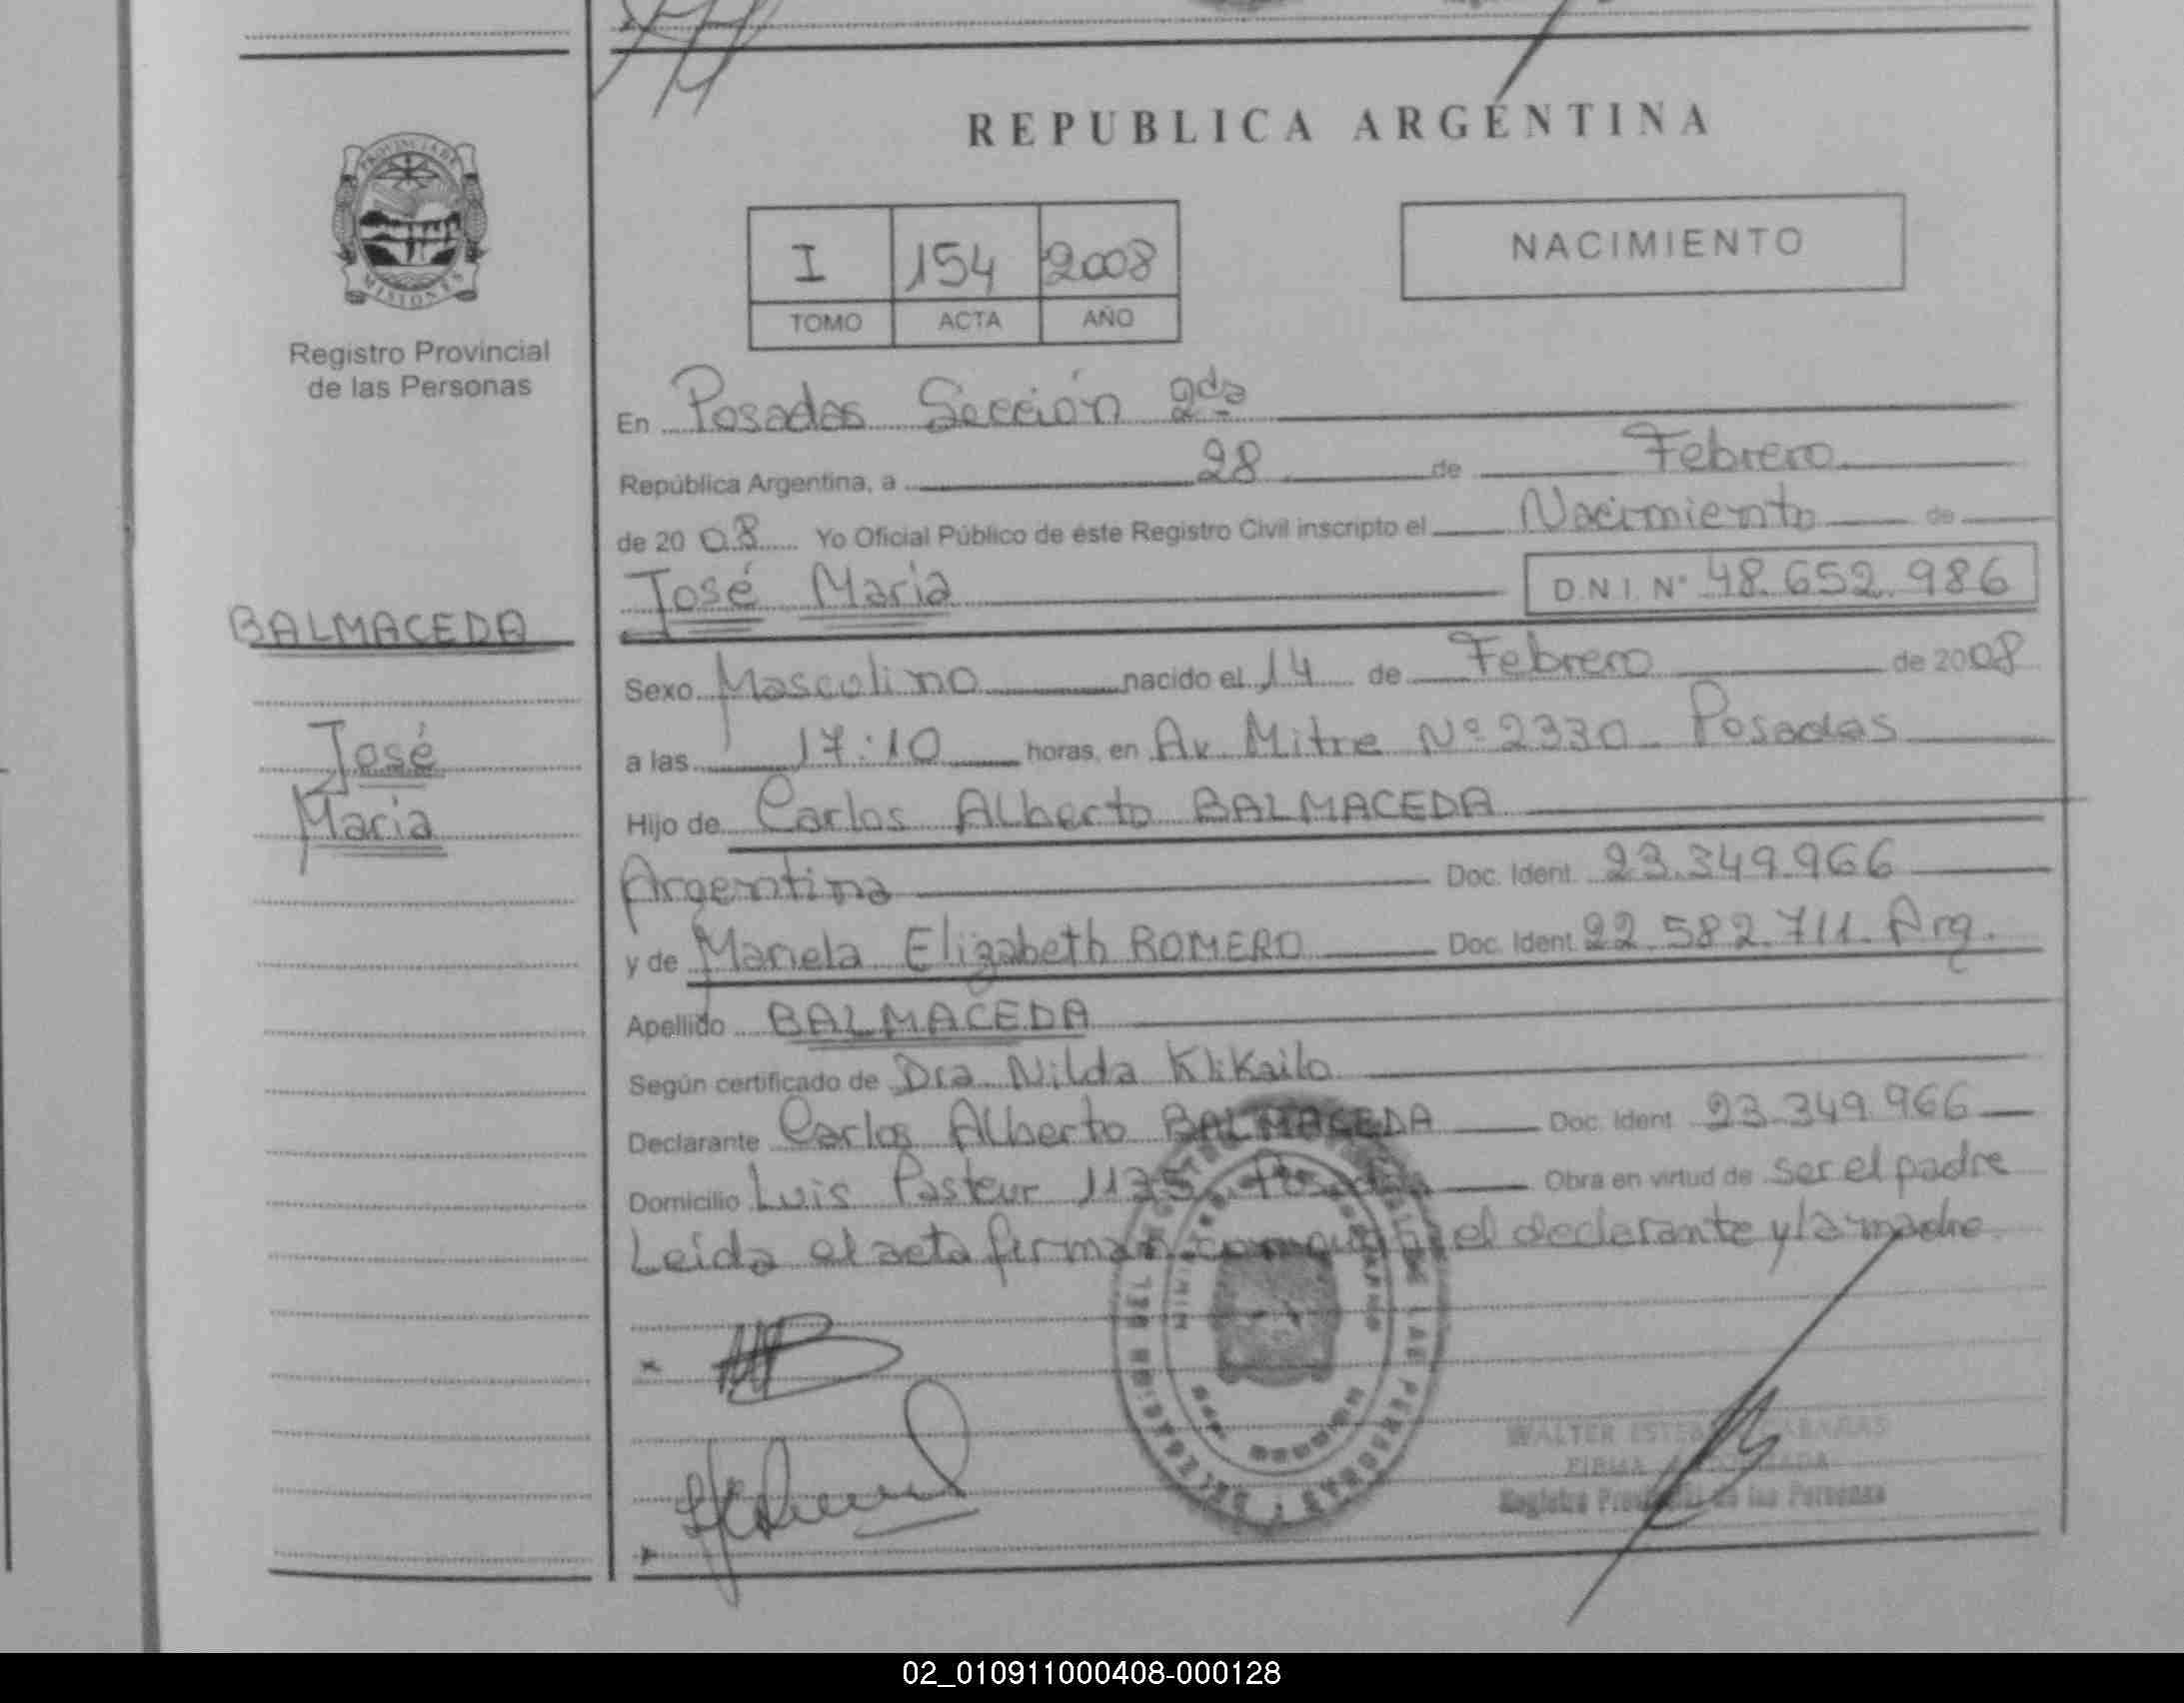 REPUBLICA ARGENTINA
PROVINCIA DE
MISIONES
Registro Provincial
de las Personas
I 154 2008
TOMO ACTA AÑO
NACIMIENTO
En Posadas Sección 2da
República Argentina, a 28 de Febrero
de 2008 Yo Oficial Público de éste Registro Civil inscripto el Nacimiento de
José Maria D.N.I. N° 48.652.986
BALMACEDA
José
Maria
Sexo Masculino nacido el 14 de Febrero de 2008
a las 17:10 horas, en Av. Mitre Nº 2330 Posadas
Hijo de Carlos Alberto BALMACEDA
Argentina Doc. Ident. 23.349.966
y de Mariela Elizabeth ROMERO Doc. Ident. 22.582.711. Arg.
Apellido BALMACEDA
Según certificado de Dra. Nilda Klikailo
Declarante Carlos Alberto BALMACEDA Doc. Ident. 23.349.966
Domicilio Luis Pasteur 1135 Posadas Obra en virtud de ser el padre
Leida el acta firman conmigo el declarante y la madre
WALTER
FIRMA AUTORIZADA
Registro Provincial de las Personas
02_010911000408-000128